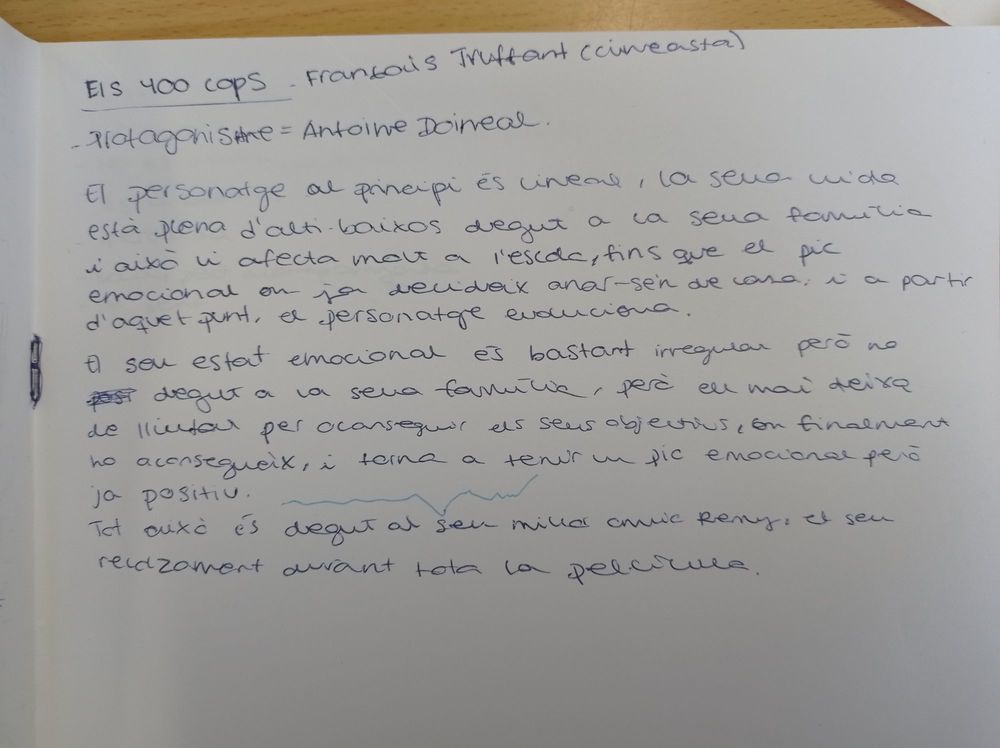 Els 400 cops - François Truffaut (cineasta)
- Protagonista = Antoine Doineal.
El personatge al principi és lineal, la seva vida
està plena d'alti-baixos degut a la seva família
i això li afecta molt a l'escola, fins que el pic
emocional on ja decideix anar-se'n de casa, i a partir
d'aquet punt, el personatge evoluciona.
El seu estat emocional és bastant irregular però no
degut a la seva família, però ell mai deixa
de lluitar per aconseguir els seus objectius, on finalment
ho aconsegueix, i torna a tenir un pic emocional però
ja positiu.
Tot això és degut al seu millor amic Reny, el seu
durant tota la pel·lícula.